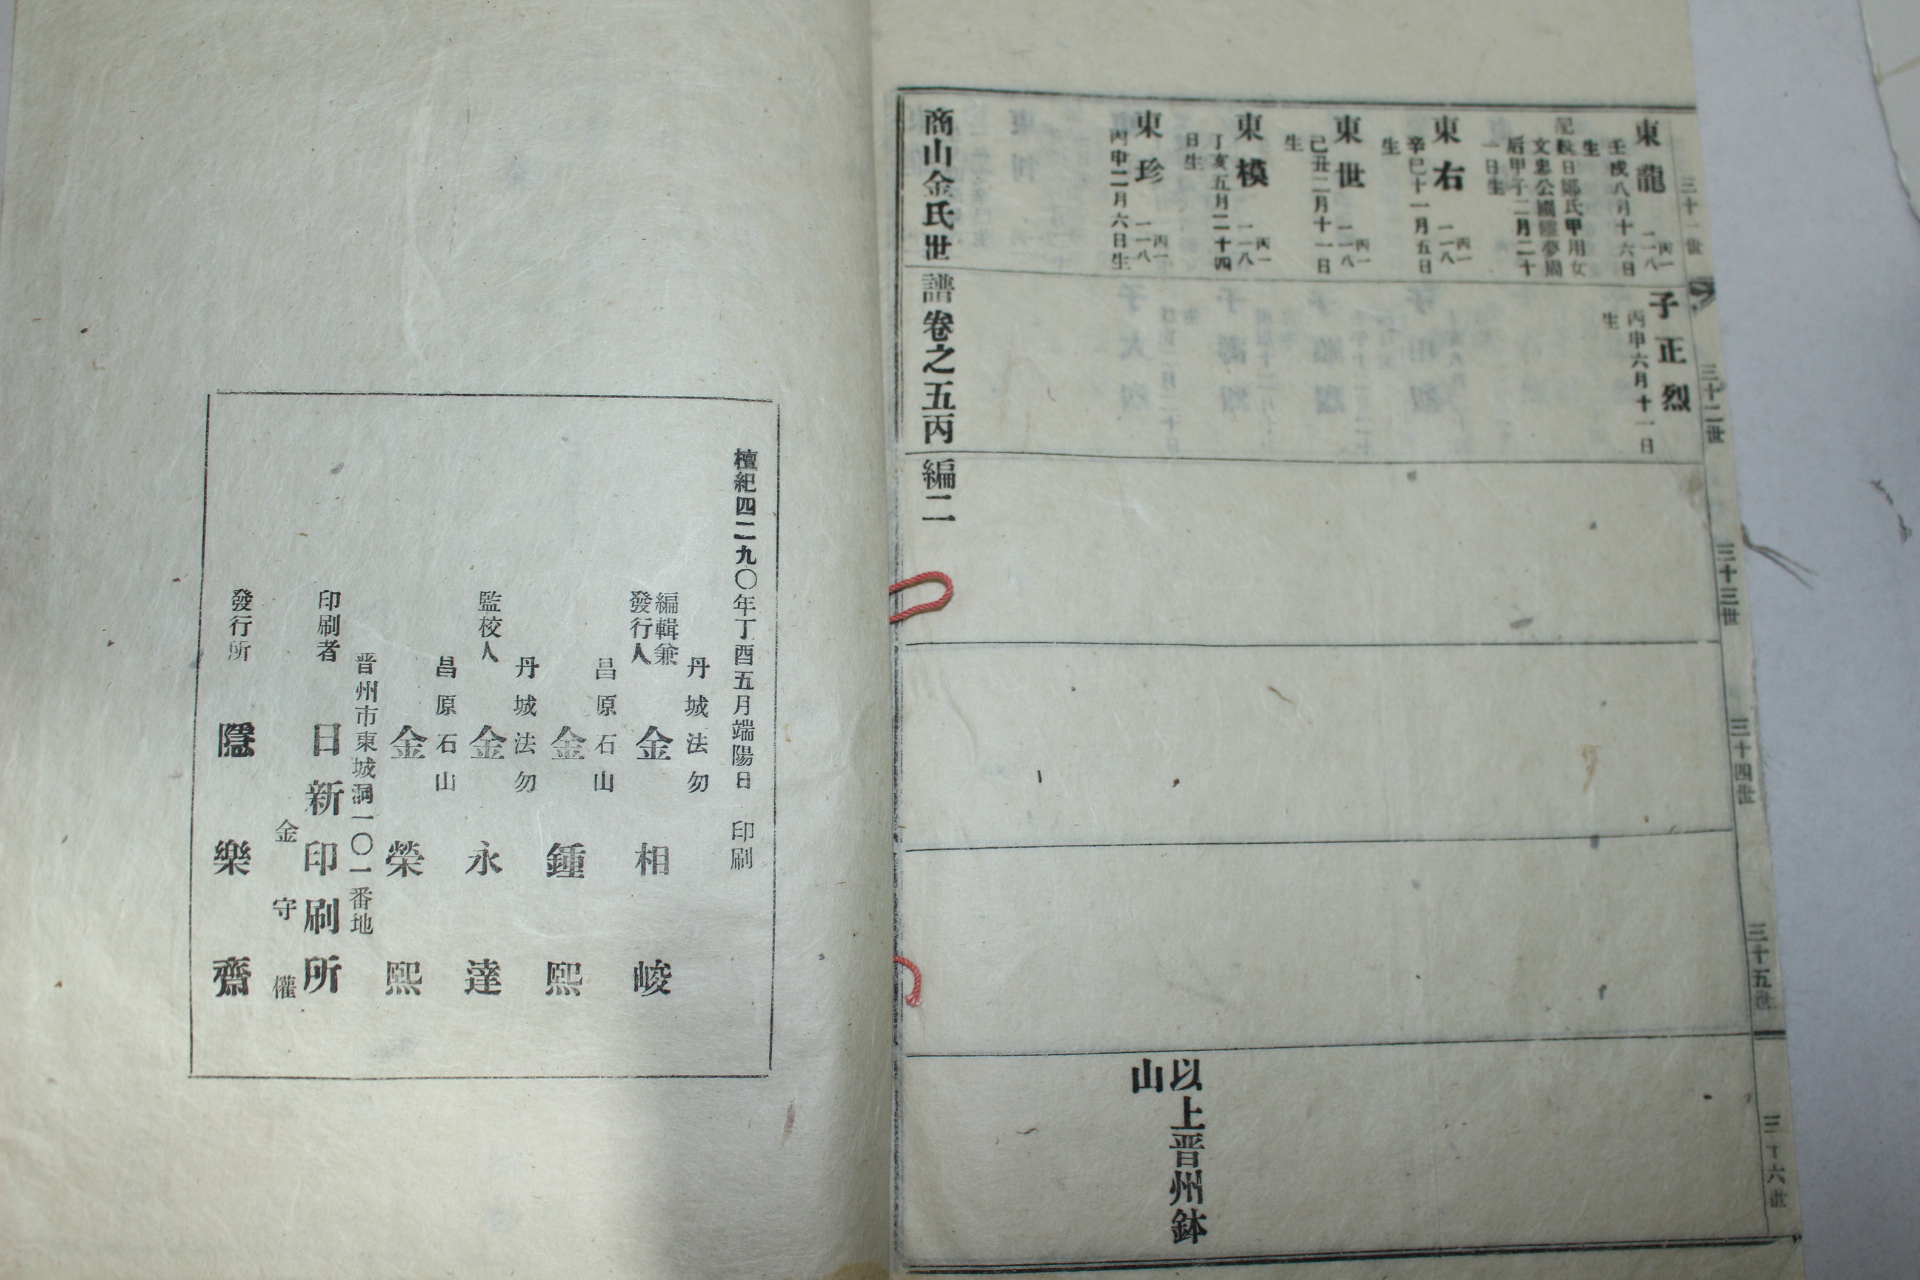 三十一世
東龍 丙一 一一八
壬戌八月十六日
生
配晋日鄭氏甲用女
文忠公圃隱夢周
后甲子二月二十
一日生
東右 丙一 一一八
辛巳十一月五日
生
東世 丙一 一一八
己丑二月十一日
生
東模 丙一 一一八
丁亥五月二十四
日生
東珍 丙一 一一八
丙申二月六日生
三十二世
子正烈
丙申六月十一日
生
三十三世
三十四世
三十五世
三十六世
以上晋州鉢
山
商山金氏世譜卷之五丙編二
檀紀四二九〇年丁酉五月端陽日 印刷
丹城法勿
編輯兼
發行人 金相峻
昌原石山
金鍾熙
丹城法勿
監校人 金永達
昌原石山
金榮熙
晋州市東城洞一〇一番地
印刷者 日新印刷所
金守權
發行所 隱樂齋